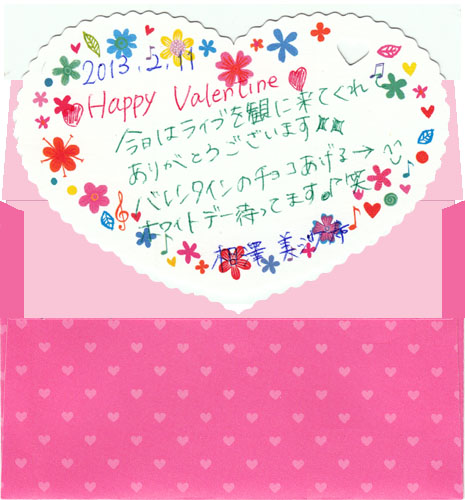 2013.2.11
Happy Valentine
今日はライブを観に来てくれ
ありがとうございます☆☆
バレンタインのチョコあげる→
ホワイトデー待ってます♪笑
相澤 美沙希